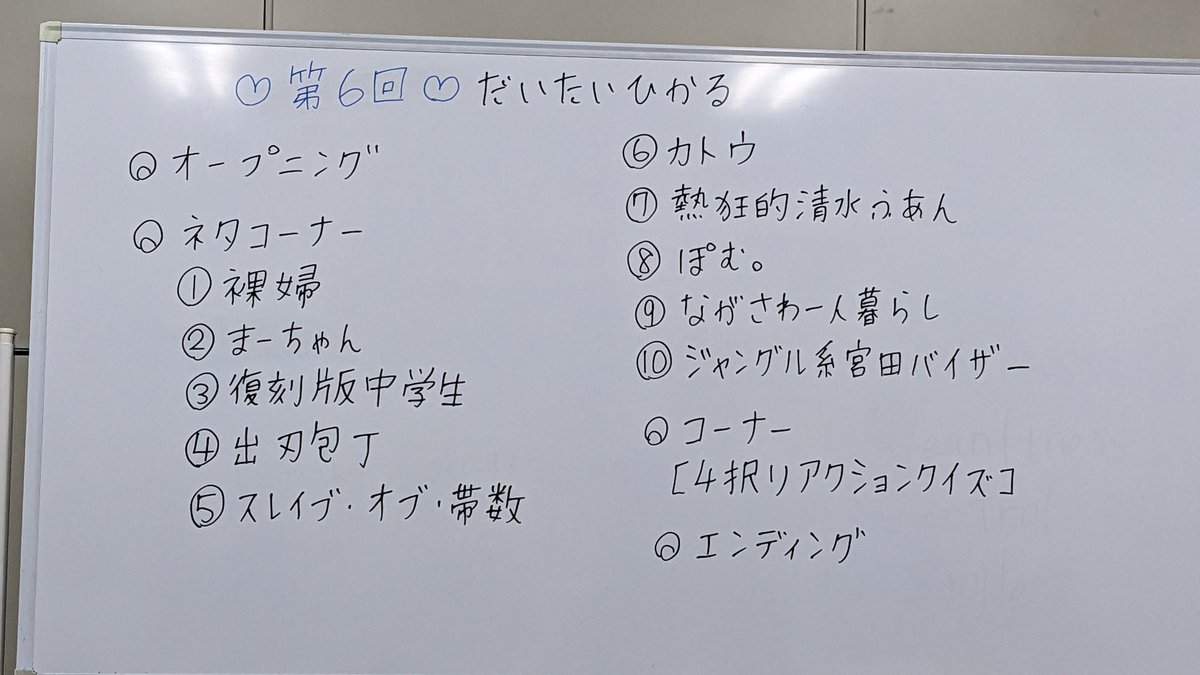 ♡第6回♡だいたいひかる
◎オープニング
◎ネタコーナー
①裸婦
②まーちゃん
③復刻版中学生
④出刃包丁
⑤スレイブ・オブ・帯数
⑥カトウ
⑦熱狂的清水ふあん
⑧ぽむ。
⑨ながさわ一人暮らし
⑩ジャングル系宮田バイザー
◎コーナー
[4択リアクションクイズ]
◎エンディング